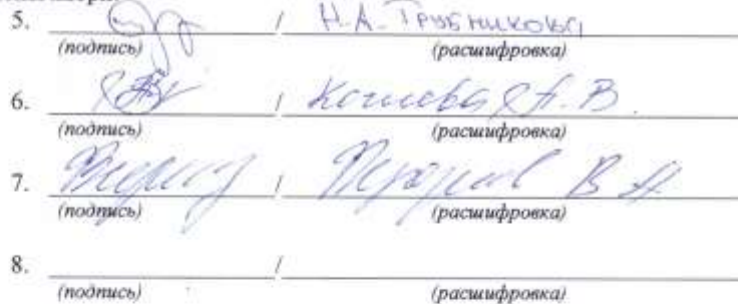 5. / Н.А. Трубникова
(подпись) (расшифровка)
6. / А.В.
(подпись) (расшифровка)
7. / В А
(подпись) (расшифровка)
8. /
(подпись) (расшифровка)